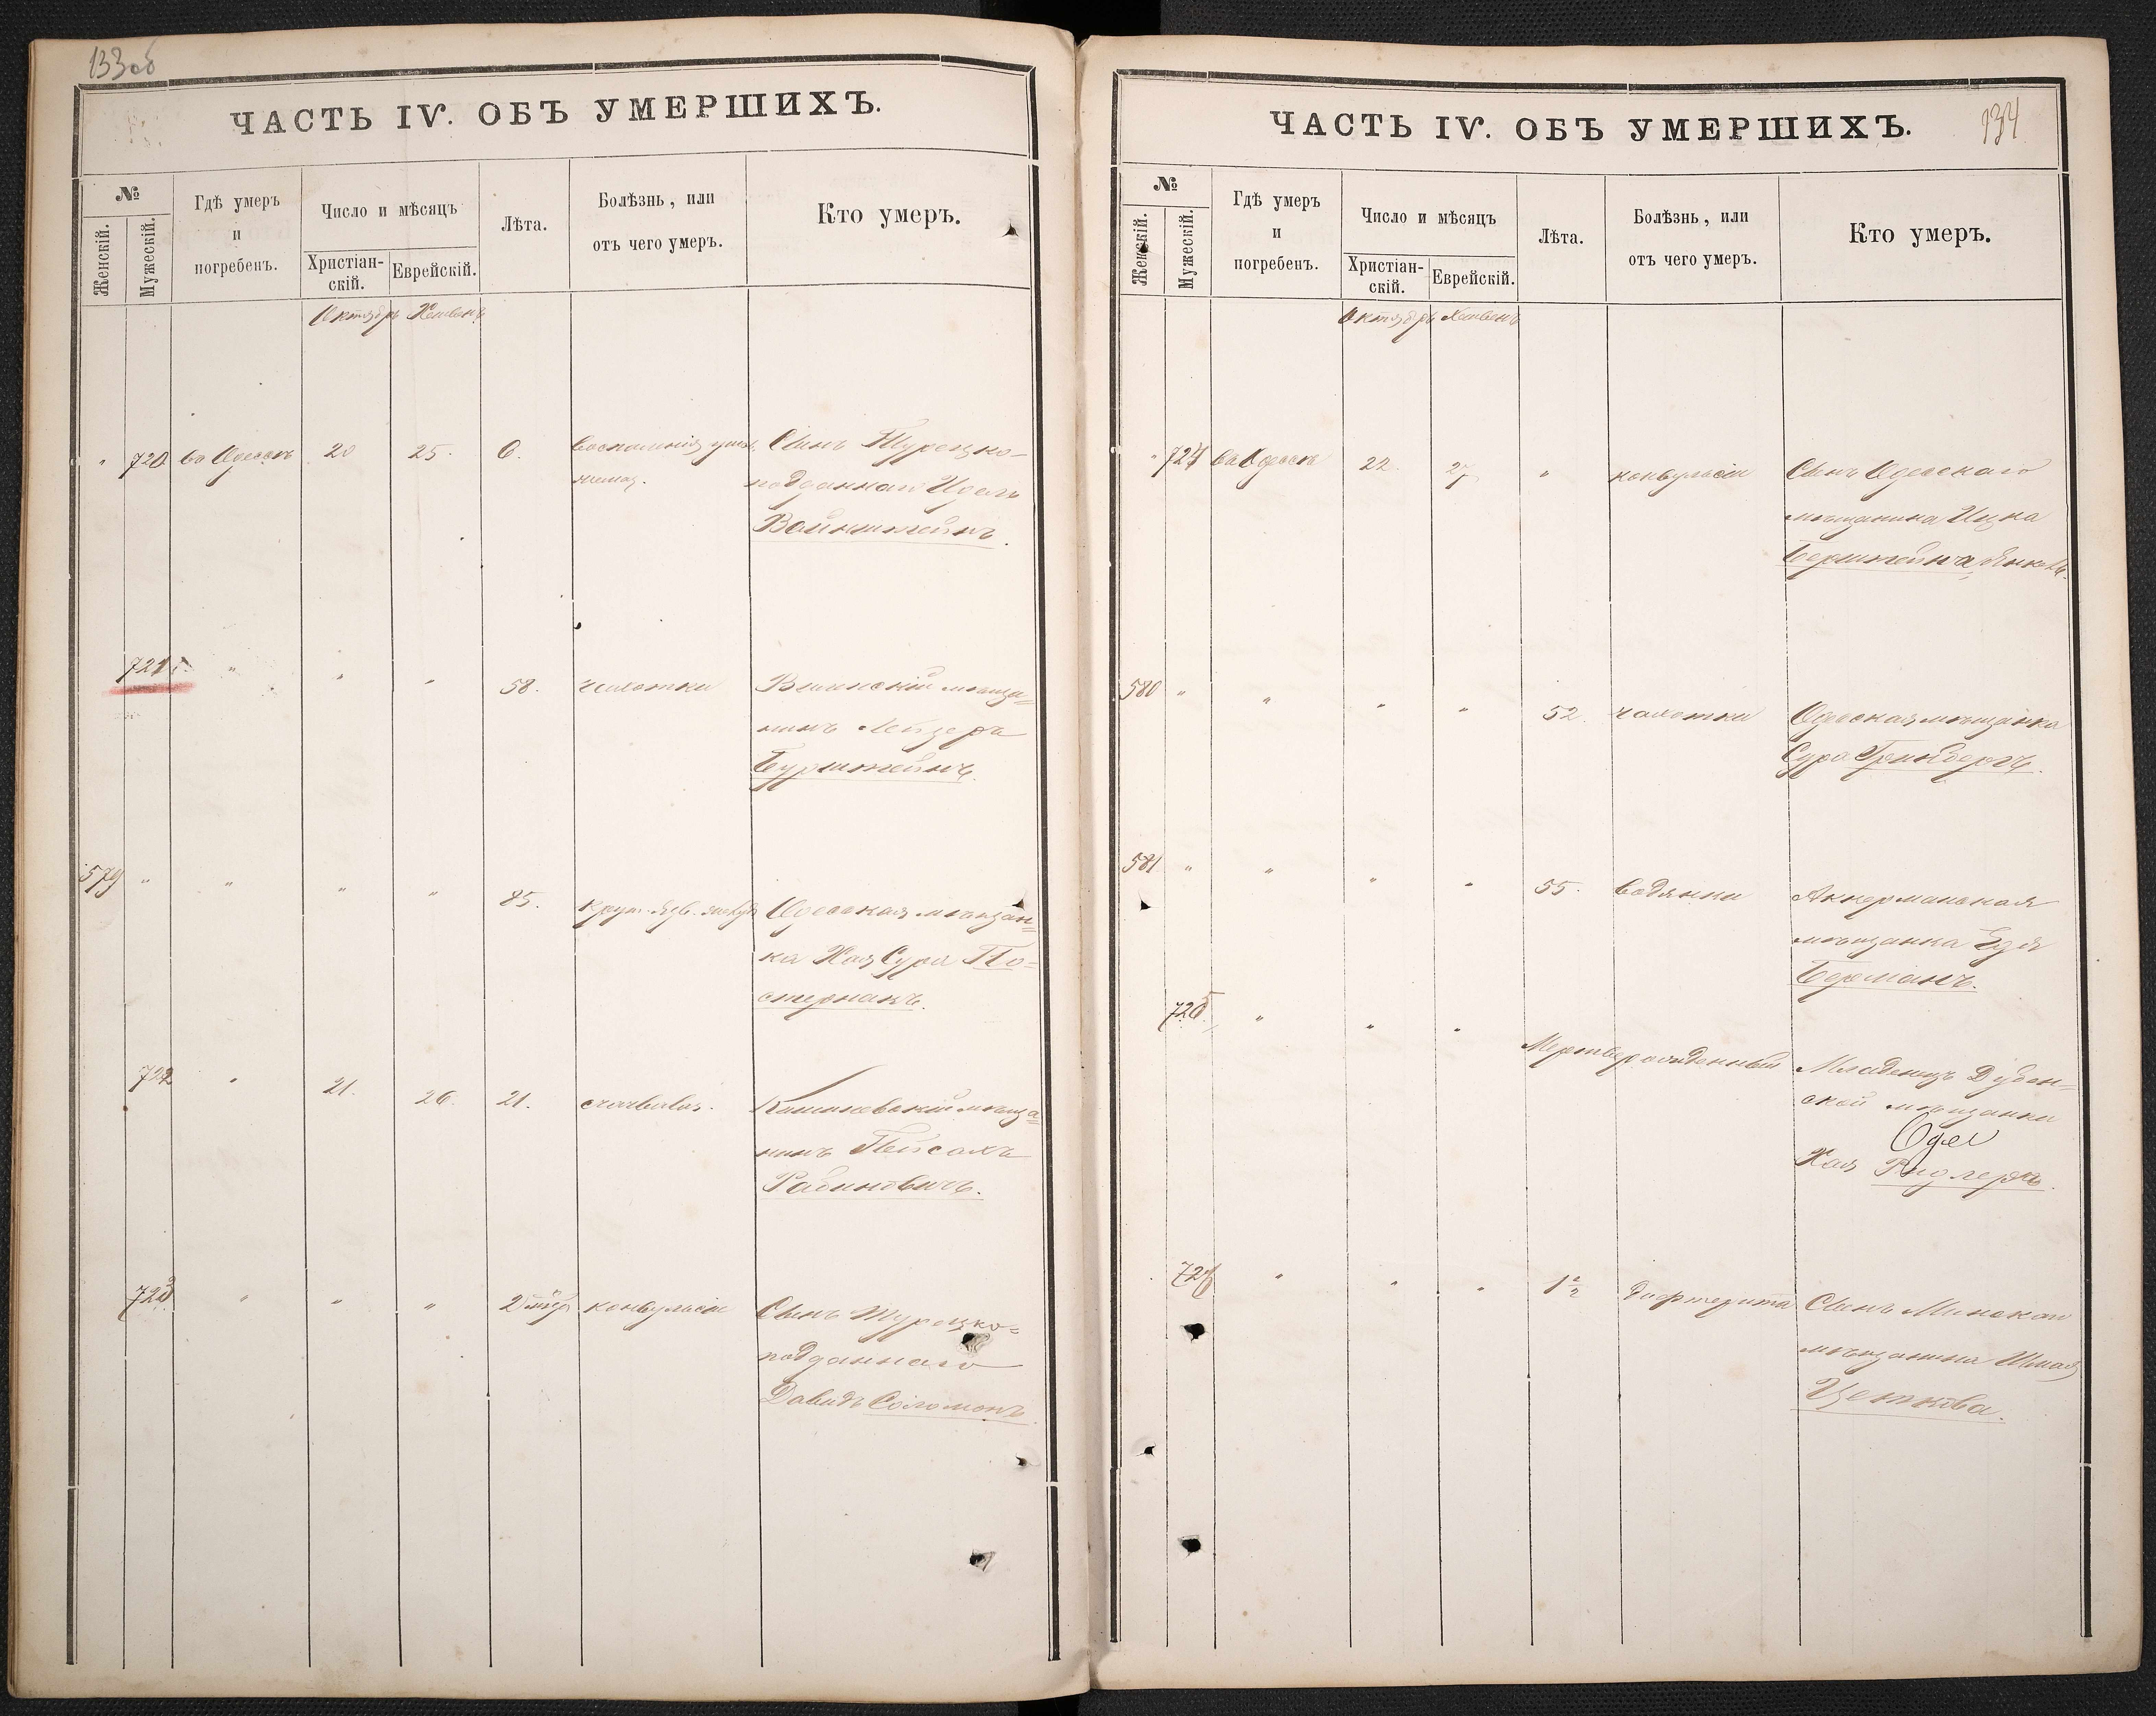 133об
ЧАСТЬ IV. ОБЪ УМЕРШИХЪ.
№
Женскій.
Мужескій.
Гдѣ умеръ
и
погребенъ.
Число и мѣсяцъ
Христіан-
скій.
Еврейскій.
Лѣта.
Болѣзнь, или
отъ чего умеръ.
Кто умеръ.
Октябрь Хешвенъ
" 720 во Одессѣ 20 25. 6. Воспаленія Сынъ Турецко-
подданнаго
Вайнштейнъ.
721 " " " 58. чахотки Виленскій мѣща=
нинъ Лейзеръ
Бурштейнъ.
579 " " " " 85. Одесская мѣщан=
ка Хая Сура По=
стернакъ.
722 " 21. 26. 21. Кишиневскій мѣща=
нинъ Пейсахъ
Рабиновичъ.
723 " " " 2 конвульсіи Сынъ Турецко=
подданнаго
Давидъ Соломонъ.
134
ЧАСТЬ IV. ОБЪ УМЕРШИХЪ.
№
Женскій.
Мужескій.
Гдѣ умеръ
и
погребенъ.
Число и мѣсяцъ
Христіан-
скій.
Еврейскій.
Лѣта.
Болѣзнь, или
отъ чего умеръ.
Кто умеръ.
Октябрь Хешвенъ
" 724 во Одессѣ 22. 27 " конвульсіи Сынъ Одесскаго
мѣщанина Ицка
Берштейна,
580 " " " " 52. чахотки Одесская мѣщанка
Сура Гринбергъ.
581 " " " " 55. водянки Аккерманская
мѣщанка
Берманъ.
725 " " " Мертворожденный Младенецъ Дубен=
ской мѣщанки
Одел
Хая Ридлеръ.
726 " " " 1½ дифтерита Сынъ Минскаго
мѣщанина